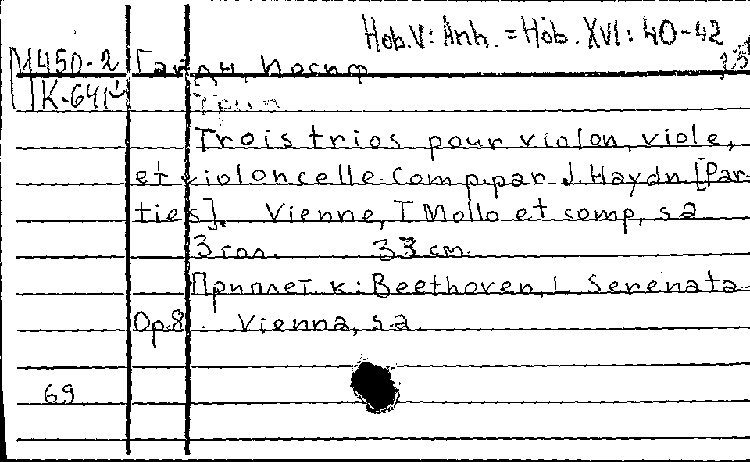 Hob. V: Anh. = Hob. XVI: 40-42
M450-2 Гайдн, Иосиф
K-641
Трио
Trois trios pour violon, viole,
et violoncelle. Comp. par J. Haydn. [Par-
ties]. Vienne, T. Mollo et comp, s a
3 гол. 33 см.
Приплет. к: Beethoven, L Serenata
Op. 8. Vienna, s.a.
69